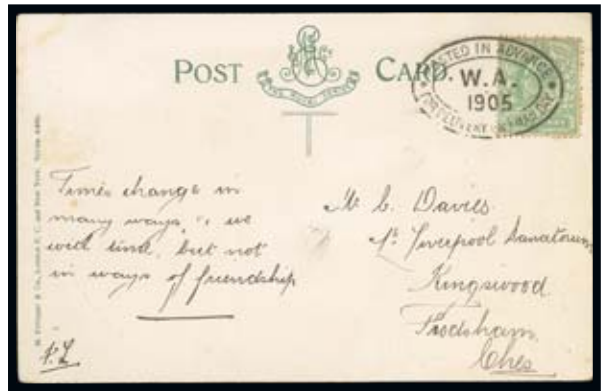 POST CARD.
POSTED IN ADVANCE
W.A.
1905
FOR DELIVERY XMAS DAY
Times change in
many ways, & we
with time, but not
in ways of friendship
P.L
Mr C. Davies
Liverpool Sanatorium
Kingswood
Frodsham
Ches